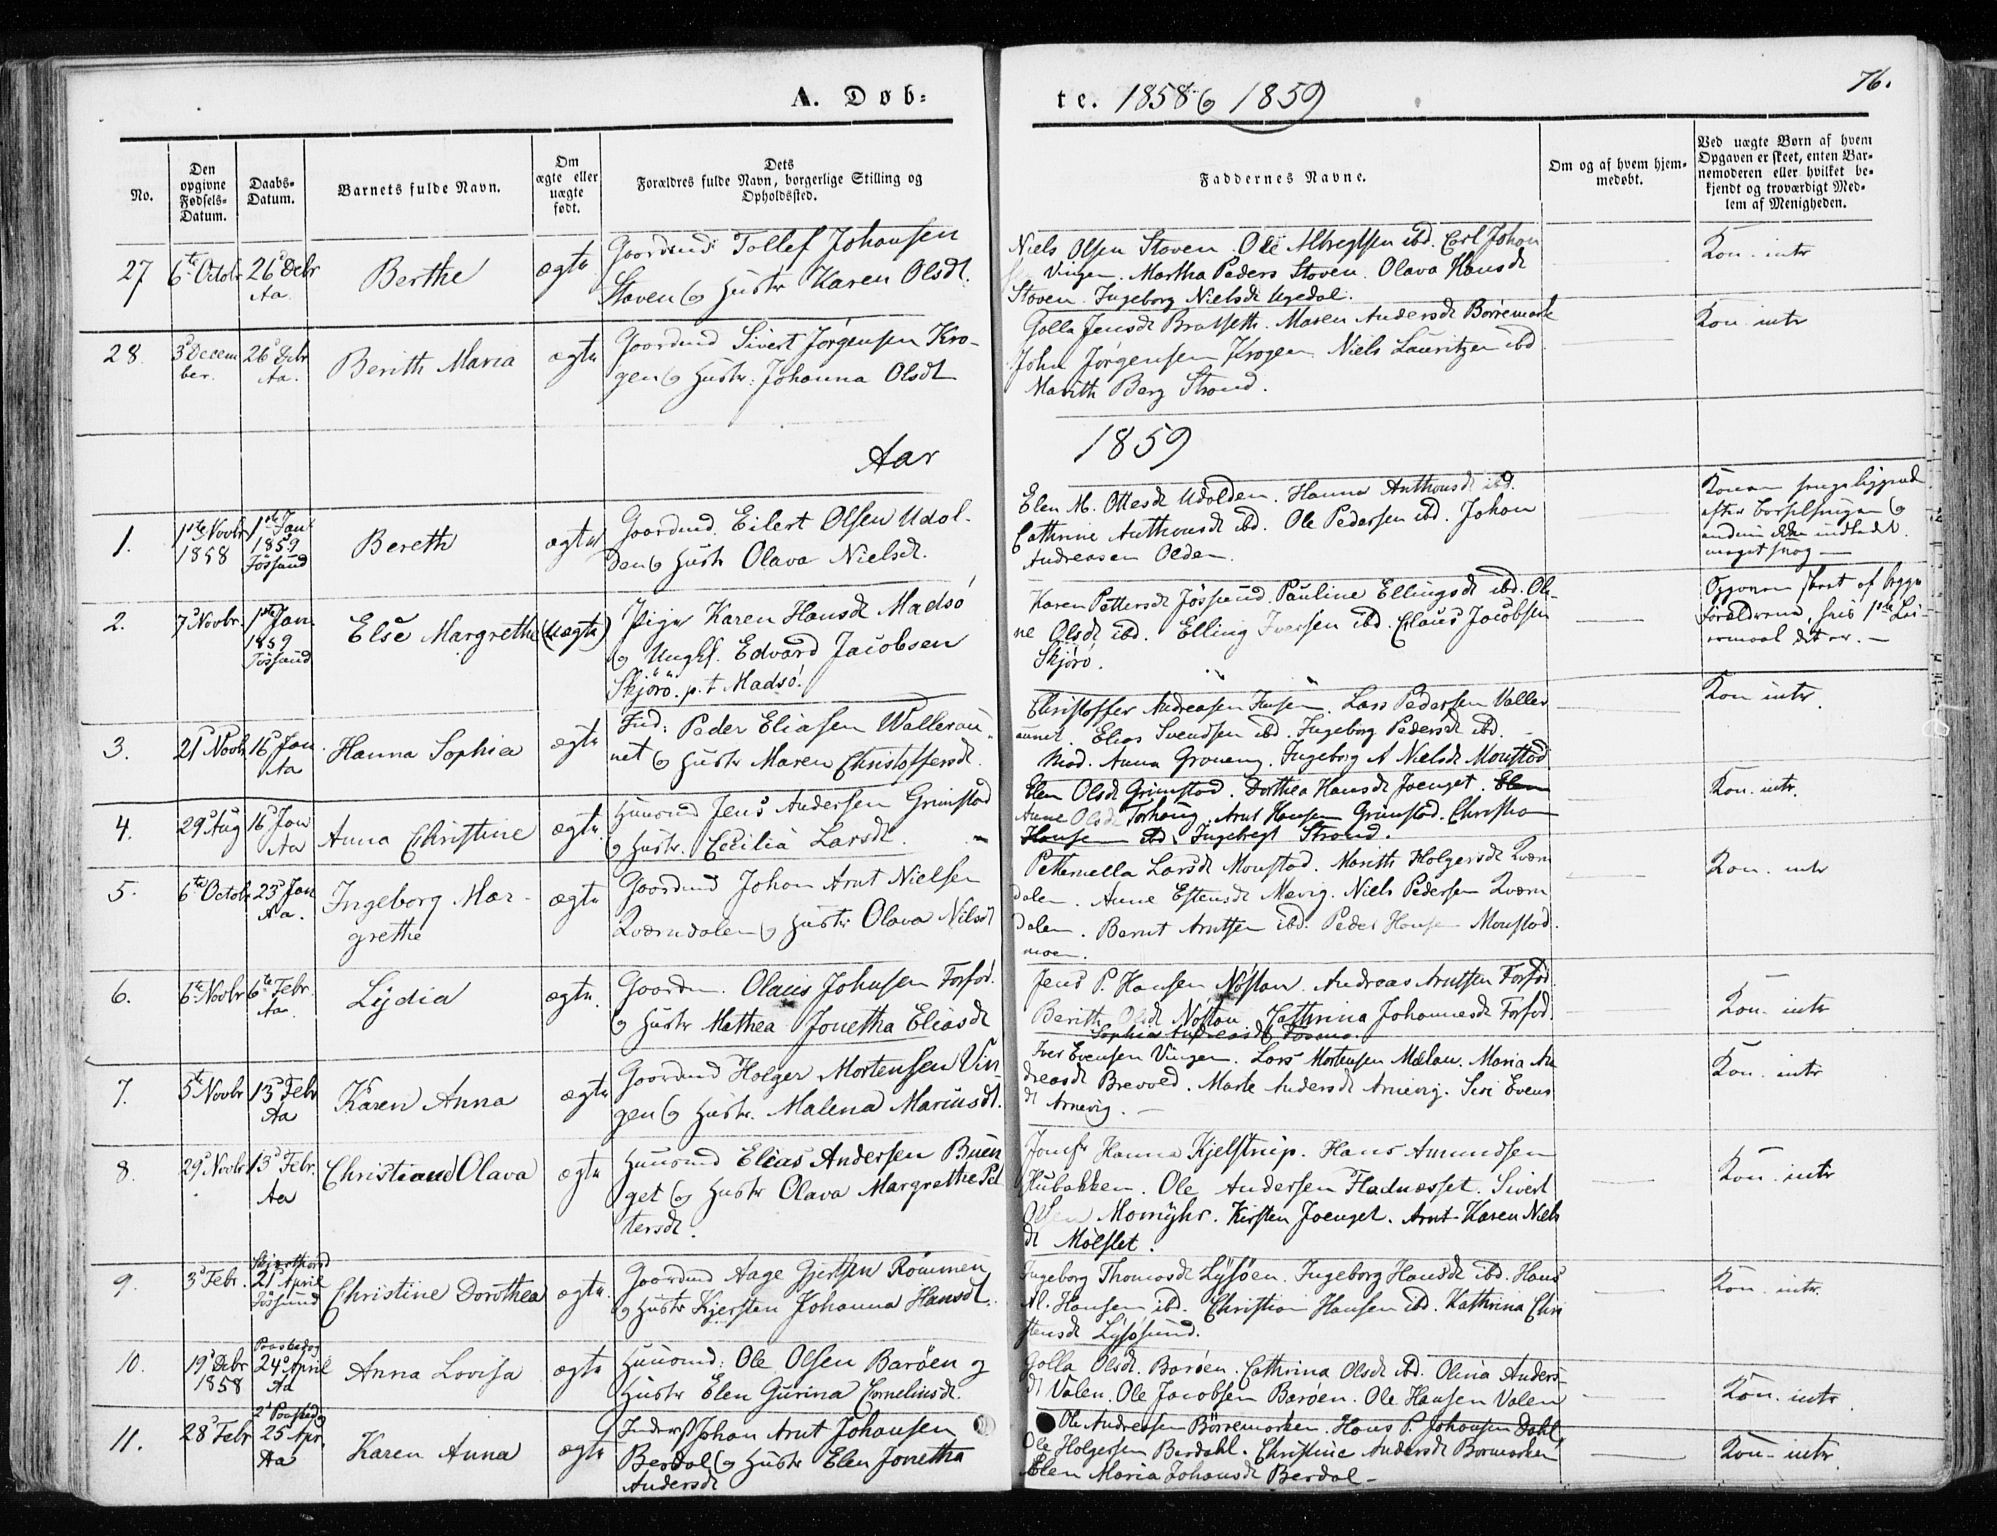 76.
A. Døb-
te. 1858 og 1859
No.
Den
opgivne
Fødsels-
Datum.
Daabs-
Datum.
Barnets fulde Navn.
Om
ægte eller
uægte
født.
Dets
Forældres fulde Navn, borgerlige Stilling og
Opholdssted.
Faddernes Navne.
Om og af hvem hjem-
medøbt.
Ved uægte Børn af hvem
Opgaven er skeet, enten Bar-
nemoderen eller hvilket be-
kjendt og troværdigt Med-
lem af Menigheden.
27
6te Octobr
26 Debr
Aa.
Berthe
ægte
Gaardmd Tollef Johansen
Staven og Hustr Karen Olsdt.
Niels Olsen Stoven. Ole Albregtsen ibd. Carl Johan
Vingen. Martha Peders Stoven. Olava Hansdt
Stoven. Ingeborg Nielsdt
Kon. intr
28.
3 Decem
ber.
26 Debr
Aa.
Berith Maria
ægte
Gaardmd Sivert Jørgensen Kro-
gen og Hustr. Johanna Olsdt
Golla Jensdt Bratseth. Maren Andersdt Børremark
John Jørgensen Krogen. Niels Lauritzen ibd
Marith Berg Strand.
Kon. intr
Aar
1859
1.
1ste Novbr
1858
1ste Jan
1859
Jössund
Bereth
ægte
Gaardmd. Eilert Olsen Udol-
den og Hustr Olava Nielsdt.
Elen M. Ottesdt Udolden. Hanna Anthonsdt ibd.
Cathrine Anthonsdt ibd. Ole Pedersen ibd. Johan
Andreasen Olden.
Konen sengeliggende
efter Barselsengen og
meget svag
2.
7 Novbr.
1ste Jan
1859
Jössund
Else Margrethe
(uægte)
Pige Karen Hansdt Madsö
og Ungk. Edvard Jacobsen
Skjörö. p.t Madsö.
Karen Pettersdt Jössund. Pauline Ellingsdt ibd. Ole-
ne Olsdt ibd. Elling Iversen ibd. Claus Jacobsen
Skjörö.
3.
21 Novbr
16 Jan
Aa
Hanna Sophia
ægte
Ind: Peder Eliasen Wallerau-
net og Hustr Maren Christoffersdt.
Christoffer Andreasen. Lars Pedersen Valler
aunet. Elias Svendsen ibd. Ingeborg Pedersdt ibd.
Mad. Anna Groneng. Ingeborg A Nielsdt Monstad
Kon intr
4.
29 Aug
16 Jan
Aa
Anna Christine
ægte.
Huusmd Jens Andersen Grimstad
og Hustr. Cecilia Larsdt.
Elen Olsdt Grimstad. Dorthea Hansdt Joenget.
Anne Olsdt Torhaug. Arnt Hansen Grimstad. Christian
Hansen ibd. Ingebregt Strand.
Kon. intr.
5.
6te Octobr
23 Jan
Aa.
Ingeborg Mar-
grethe
ægte
Gaardmd Johan Arnt Nielsen
Qværndalen og Hustr Olava Nilsdt
Petternella Larsdt Monstad. Marith Holgersdt Qværn
dalen. Anne Estensdt Mevig. Niels Pedersen Qværn
dalen. Bernt Arntsen ibd. Peder Hansen Monstad
moen.
Kon. intr
6.
6te Novbr
6te Febr.
Aa.
Lydia
ægte.
Gaardm. Olaus Johnsen Forfod.
og Hustr Mathea Jonetha Eliasdt
Jens P. Hansen Nöstan. Andreas Arntsen Forfod.
Berith Olsdt Nöstan. Cathrina Johannesdt Forfod.
Sophia Andreasdt Fosmo.
Kon. intr
7.
5te Novbr
13 Febr
Aa
Karen Anna
ægte
Gaardmd Holger Mortensen Vin-
gen og Hustr. Malena Mariusdt.
Iver Evensen Vingen. Lars Mortensen Mælan. Maria An
dreasdt Brevold. Marte Andersdt Arnevig. Siri Evens
dt Arnevig.
Kon. intr
8.
29 Novbr
13 Febr.
Aa
Christiane Olava
ægte
Huusmd Elias Andersen Buen
get og Hustr Olava Margrethe Pet
tersdt.
Jomfr Hanna Kjelstrup. Hans Amundsen
Hubakken. Ole Andersen Fladnæsset. Sivert
Olsen Momyhr. Kirsten Joenget. Karen Niels
dt Mölslet.
Kon. intr
9.
3 Febr.
21 April
Jössund
Christine Dorothea
ægte.
Gaardmd Aage Gjertsen Römmen
og Hustr Kjersten Johanna Hansdt.
Ingeborg Thomasdt Lysöen. Ingeborg Hansdt ibd. Hans
M. Hansen ibd. Christian Hansen ibd. Kathrina Chri
stensdt Lysösund.
Kon. intr.
10.
19 Debr
1858
Paaskedag
24 April
Aa
Anna Lovisa
ægte
Huusmd: Ole Olsen Baröen og
Hustr Elen Gurina Corneliusdt.
Golla Olsdt. Baröen. Cathrina Olsdt ibd. Olina Anders-
dt Valen. Ole Jacobsen Baröen. Ole Hansen Valen
Kon. intr.
11.
28 Febr
2 Paaskedag
25 Apr.
Aa
Karen Anna
ægte
Inderst Johan Arnt Johansen
Berdal og Hustr Elen Jonetha
Andersdt
Ole Andreasen Börremarken. Hans P. Johansen Dahl,
Ole Holgersen Berdahl. Christine Andersdt Bormarken
Elen Maria Johansdt Berdal
Kon. intr.